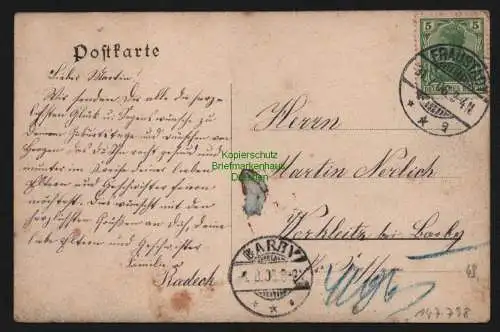 Postkarte
Lieber Martin!
Wir senden Dir alle die herz-
lichsten Glück u. Segenswünsche zu
Deinem Geburtstage und wünschen von
Herzen daß Du ihn recht gesund und
munter im Kreise Deiner lieben
Eltern und Geschwister feiern
möchtest. Dies wünscht mit den
herzlichsten Grüßen an Dich, deine
liebe Eltern und Geschwister
Familie
Radeck
5
FRAUSTADT
Herrn
Martin Nerlich
Werkleitz bei Barby
Kopierschutz
Briefmarkenhaus
Dresden
BARBY
48
147.798